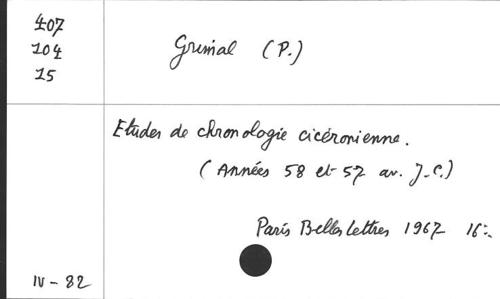 407
104
15
Grimal (P.)
Etudes de chronologie cicéronienne.
(Années 58 et 57 av. J.-C.)
Paris Belles lettres 1967 16º
IV - 82